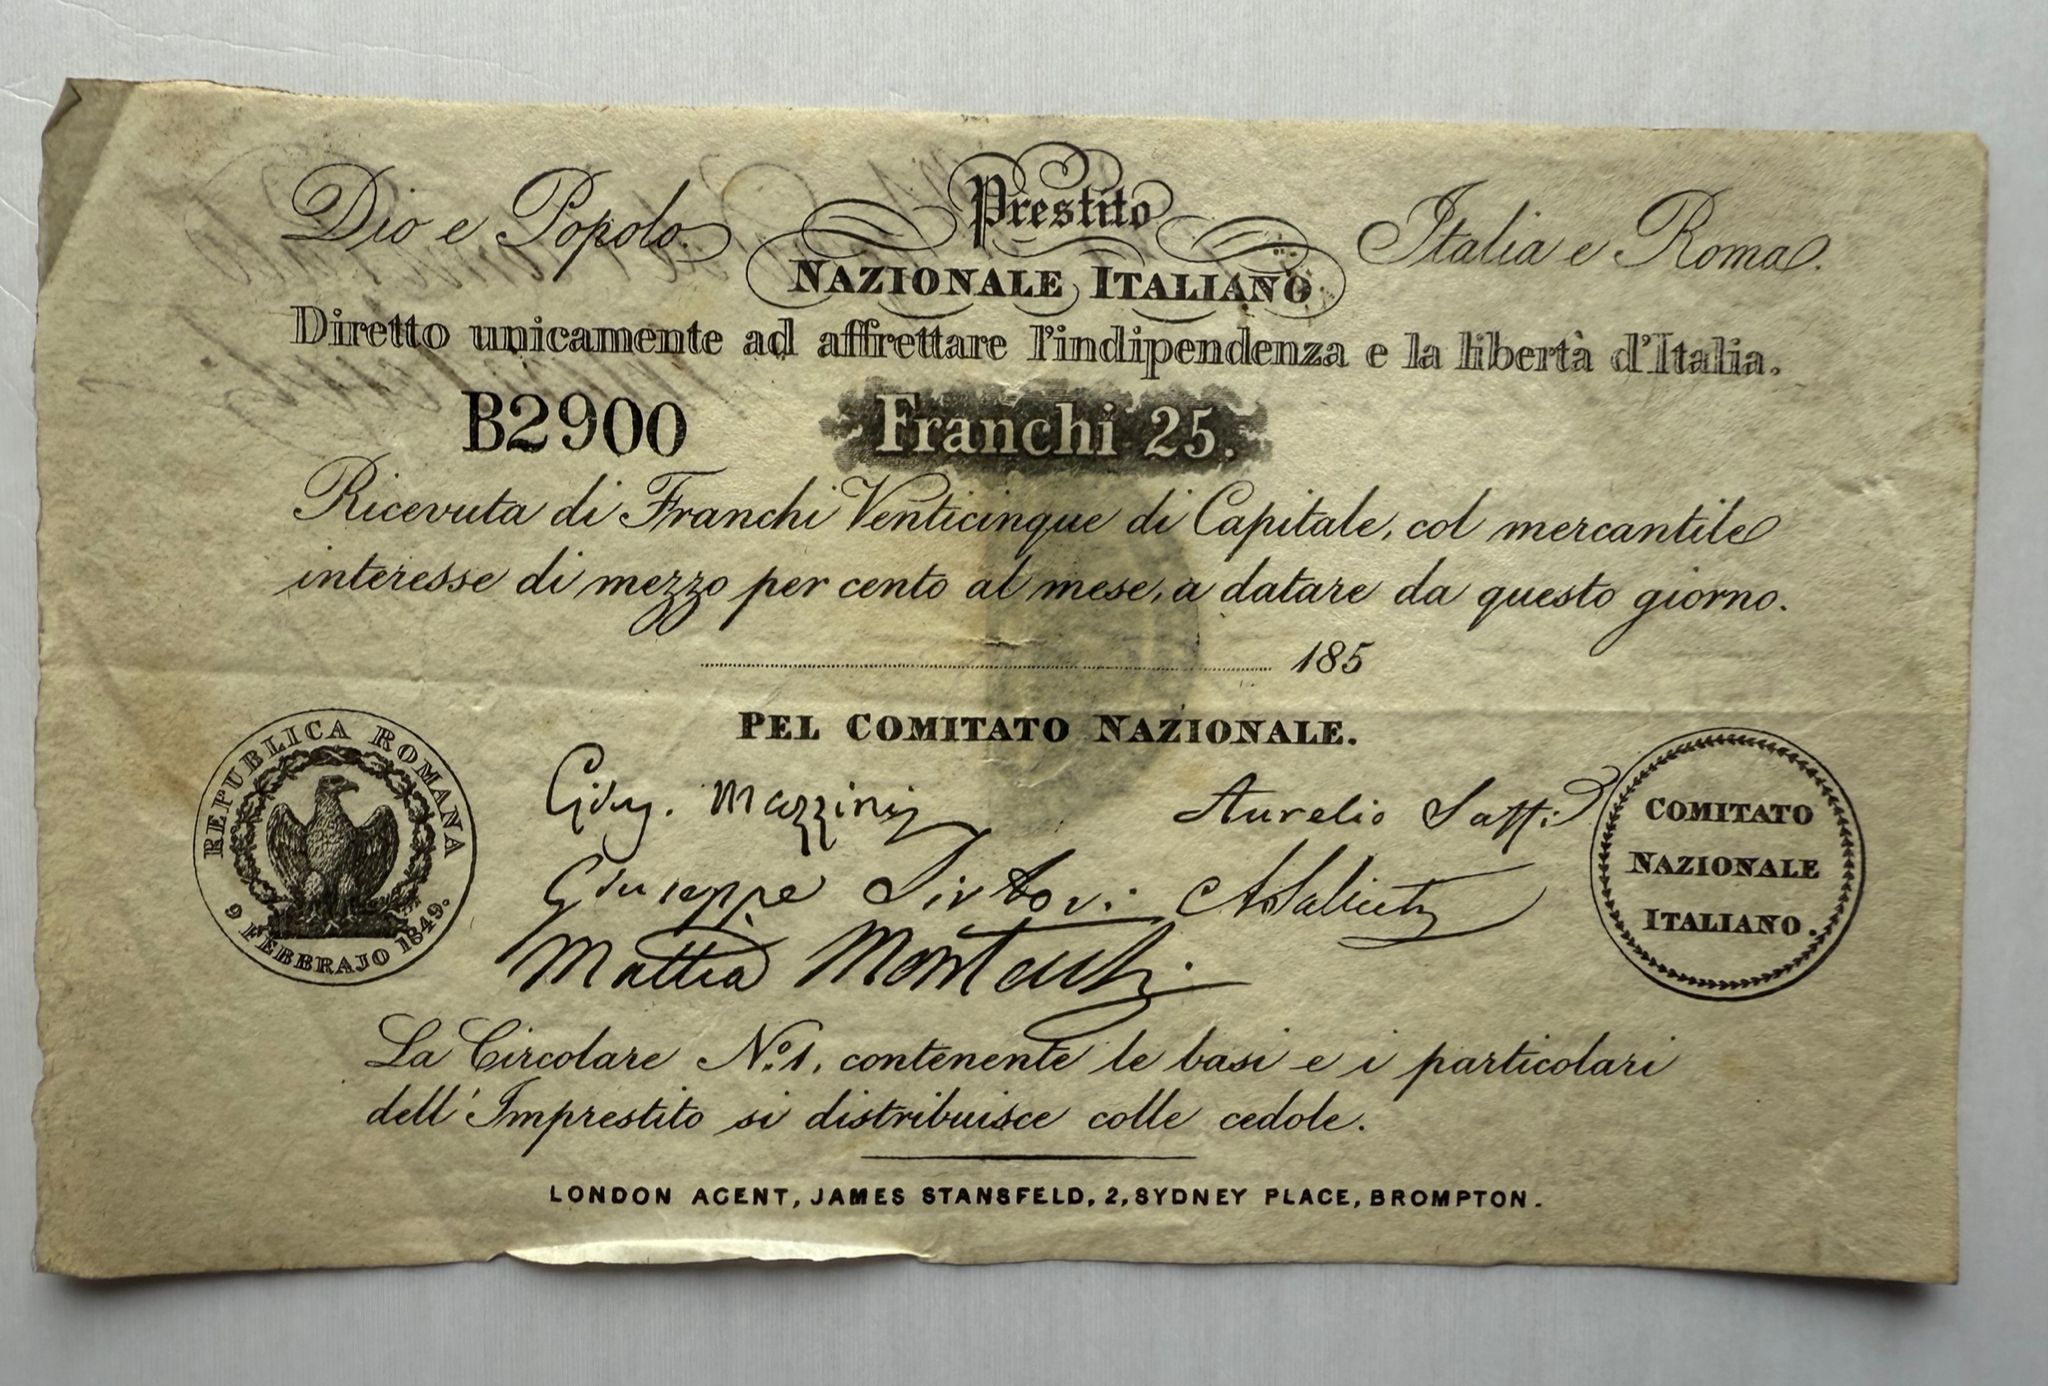 Dio e Popolo.
Prestito
Italia e Roma.
NAZIONALE ITALIANO
Diretto unicamente ad affrettare l'indipendenza e la libertà d'Italia.
B2900
Franchi 25.
Ricevuta di Franchi Venticinque di Capitale, col mercantile
interesse di mezzo per cento al mese, a datare da questo giorno.
185
PEL COMITATO NAZIONALE.
REPUBBLICA ROMANA
9 FEBBRAJO 1849.
Mazzini
Aurelio Saffi
Giuseppe Sirtori.
ASaliceti
Mattia Montecchi.
COMITATO
NAZIONALE
ITALIANO.
La Circolare No. 1, contenente le basi e i particolari
dell'Imprestito si distribuisce colle cedole.
LONDON AGENT, JAMES STANSFELD, 2, SYDNEY PLACE, BROMPTON.